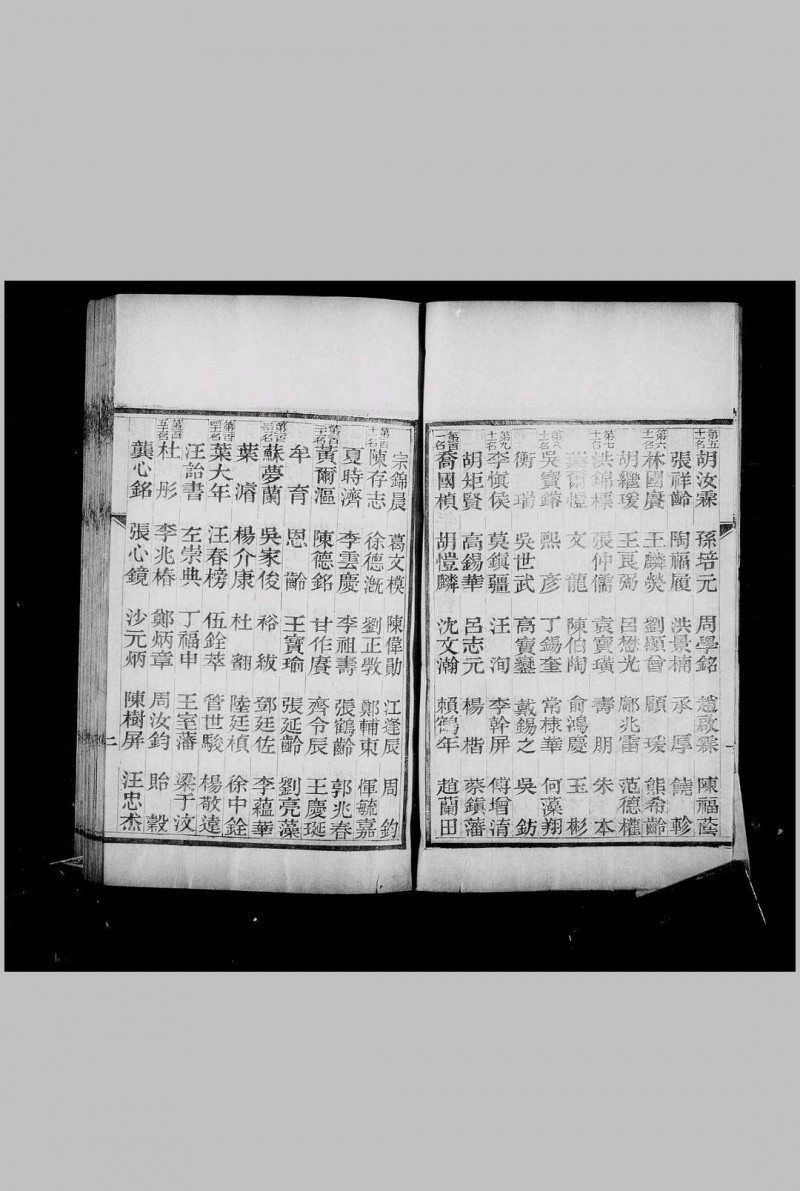 第五十名 胡汝霖 孫培元 周學銘 趙啟霖 陳福蔭
張祥齡 陶福履 洪景楠 承厚 饒軫
第六十名 林國賡 王麟 劉顯曾 顧瑗 熊希齡
胡繼瑗 王良弼 呂懋光 鄺兆雷 范德權
第七十名 洪錦標 張仲儒 袁寶璜 壽朋 朱本
葉爾愷 文龍 陳伯陶 俞鴻慶 玉彬
第八十名 吳寶鎔 熙彥 丁錫奎 常棣華 何藻翔
衡瑞 吳世武 高寶鑾 戴錫之 吳鈁
第九十名 李愼侯 莫鎭疆 汪洵 李幹屏 傅增淯
胡炬賢 高錫華 呂志元 楊楷 蔡鎭藩
第百一名 喬國楨 胡愷麟 沈文瀚 賴鶴年 趙蘭田
一
宗錦晨 葛文模 陳偉勛 江逢辰 周鈞
第百十名 陳存志 徐德漑 劉正敦 鄭輔東 惲毓嘉
夏時濟 李雲慶 李祖壽 張鶴齡 郭兆春
第百二十名 黃爾漚 陳德銘 甘作賡 齊令辰 王慶埏
牟育 恩齡 王寶瑜 張延齡 劉亮藻
第百三十名 蘇夢蘭 吳家俊 裕紱 鄧廷佐 李蘊華
葉濬 楊介康 杜翻 陸廷楨 徐中銓
第百四十名 葉大年 汪春榜 伍銓萃 管世駿 楊敬遠
汪詒書 左崇典 丁福申 王室藩 梁于汶
第百五十名 杜彤 李兆椿 鄭炳章 周汝鈞 貽穀
龔心銘 張心鏡 沙元炳 陳樹屏 汪忠杰
二